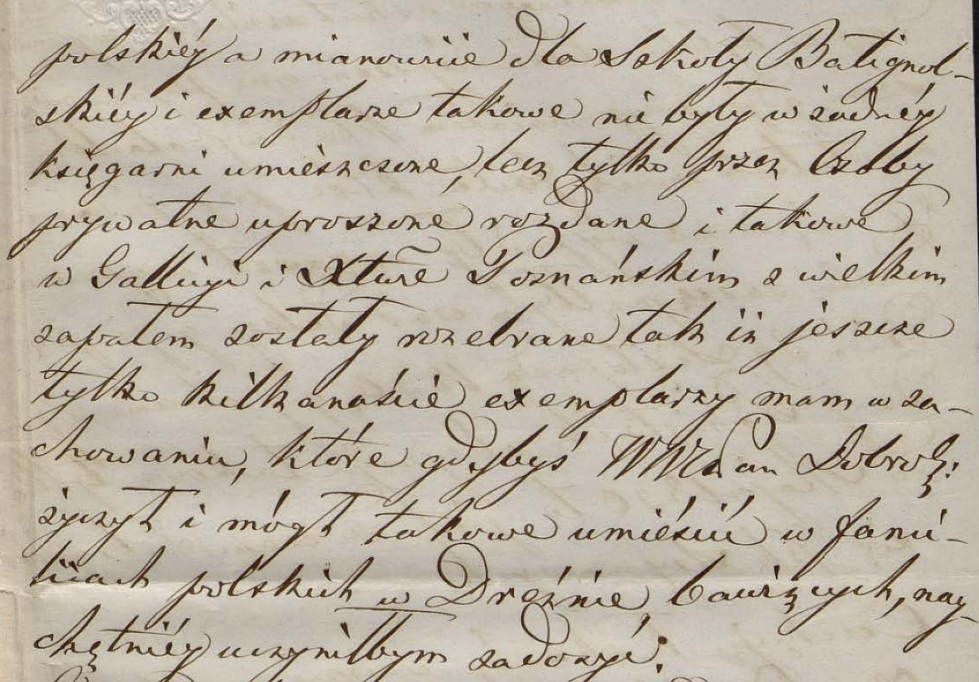 polskiéy a mianowiie dla Szkoły Batignol-
skiéy i exemplarze takowe nie były w żadnéy
księgarni umieszczone, lecz tylko przez Osoby
prywatne uproszone rozdane i takowe
w Gallicyi i Xtwie Poznańskim z wielkim
zapałem zostały rozebrane tak iż jeszcze
tylko kilkanaście exemplarzy mam w za-
chowaniu, które gdybyś Pan Dobrodz:
życzył i mógł takowe umieśćić w fami-
liiach polskich w Dreźnie bawiących, nay-
chętniéy uczyniłbym zadosyć.